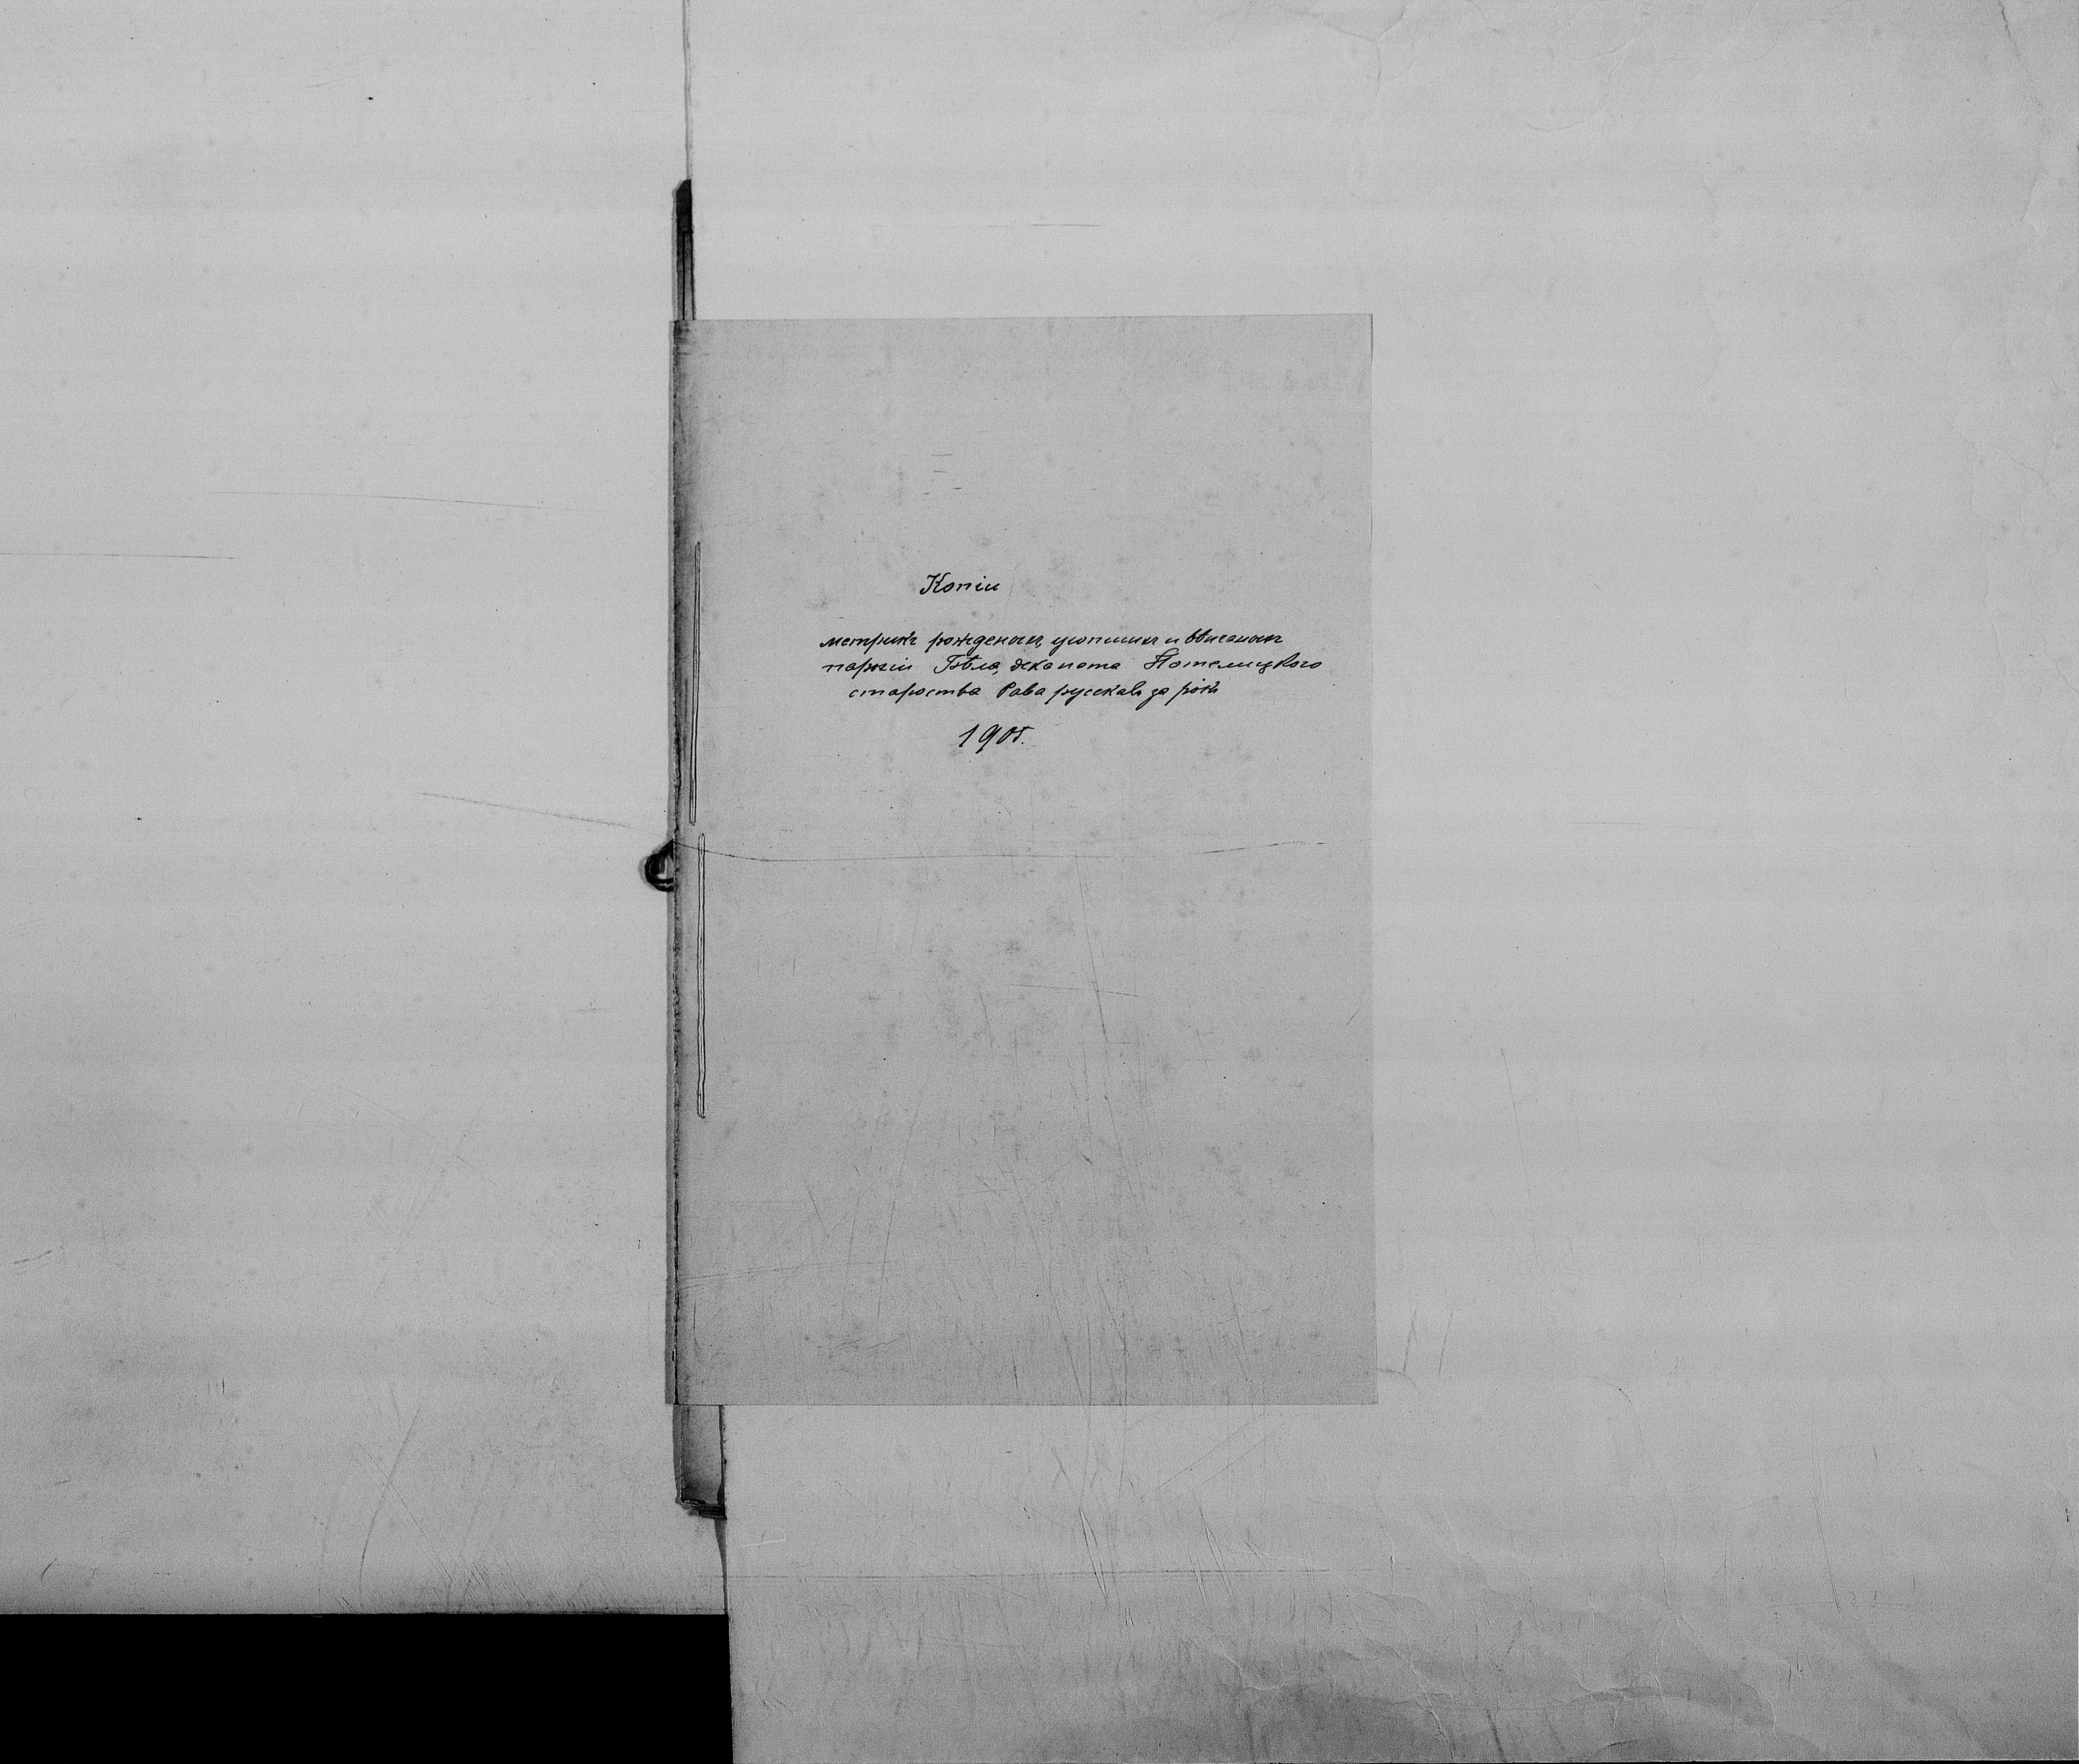 Копіи
метрикъ рожденыхъ, умершихъ и вѣнчаныхъ
парохіи Бѣла, деканата Потелицкого
староства Рава русскаѣ за рôкъ
1905.